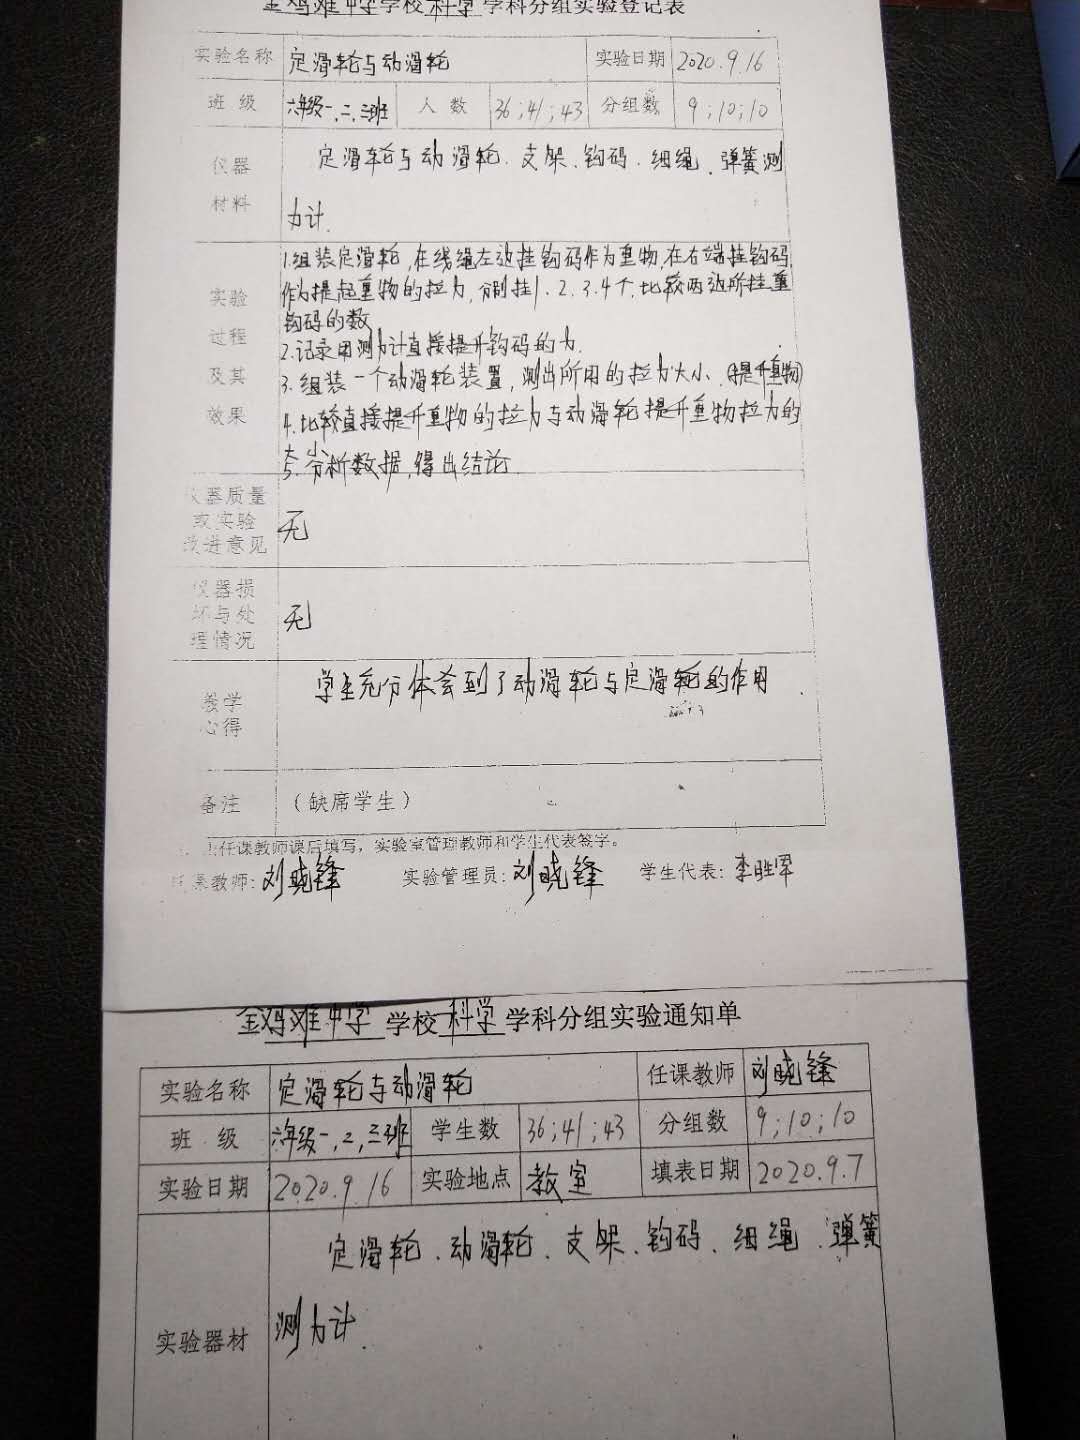 金鸡滩中学学校科学学科分组实验登记表
实验名称 定滑轮与动滑轮 实验日期 2020.9.16
班 级 六年级一,二,三班 人 数 36;41;43 分组数 9;10;10
仪器 定滑轮与动滑轮、支架、钩码、细绳、弹簧测
材料 力计.
1.组装定滑轮,在线绳左边挂钩码作为重物,在右端挂钩码
实验 作为提起重物的拉力,分别挂1、2、3、4个,比较两边所挂重
钩码的数
过程 2.记录用测力计直接提升钩码的力.
及其 3.组装一个动滑轮装置,测出所用的拉力大小.(提升重物)
效果 4.比较直接提升重物的拉力与动滑轮提升重物拉力的
大小
5.分析数据,得出结论.
仪器质量
或实验
改进意见 无
仪器损
坏与处
理情况 无
教学 学生充分体会到了动滑轮与定滑轮的作用.
心得
备注 (缺席学生)
由任课教师课后填写,实验室管理教师和学生代表签字。
任课教师:刘晓锋 实验管理员:刘晓锋 学生代表:李胜军
金鸡滩中学 学校 科学 学科分组实验通知单
实验名称 定滑轮与动滑轮 任课教师 刘晓锋
班 级 六年级一,二,三班 学生数 36;41;43 分组数 9;10;10
实验日期 2020.9.16 实验地点 教室 填表日期 2020.9.7
定滑轮、动滑轮、支架、钩码、细绳、弹簧
实验器材 测力计.